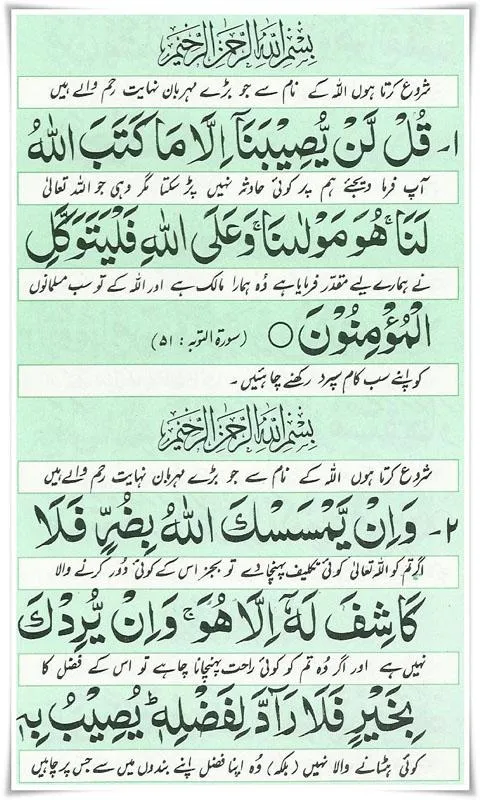 بِسْمِ اللّٰهِ الرَّحْمٰنِ الرَّحِيْمِ
شروع کرتا ہوں اللہ کے نام سے جو بڑے مہربان نہایت رحم والے ہیں
۱۔ قُلْ لَّنْ يُّصِيْبَنَاۤ اِلَّا مَا كَتَبَ اللّٰهُ
آپ فرما دیجئے ہم پر کوئی حادثہ نہیں پڑ سکتا مگر وہی جو اللہ تعالیٰ
لَنَا ۚ هُوَ مَوْلٰىنَا ۚ وَعَلَى اللّٰهِ فَلْيَتَوَكَّلِ
نے ہمارے لیے مقدر فرمایا ہے وُہ ہمارا مالک ہے اور اللہ کے تو سب مسلمانوں
الْمُؤْمِنُوْنَ ○ (سورۃ التوبہ: ۵۱)
کو اپنے سب کام سپرد رکھنے چاہئیں۔
بِسْمِ اللّٰهِ الرَّحْمٰنِ الرَّحِيْمِ
شروع کرتا ہوں اللہ کے نام سے جو بڑے مہربان نہایت رحم والے ہیں
۲۔ وَاِنْ يَّمْسَسْكَ اللّٰهُ بِضُرٍّ فَلَا
اگر تم کو اللہ تعالیٰ کوئی تکلیف پہنچا دے تو بجز اس کے کوئی دُور کرنے والا
كَاشِفَ لَهٗۤ اِلَّا هُوَ ۚ وَاِنْ يُّرِدْكَ
نہیں ہے اور اگر وُہ تم کو کوئی راحت پہنچانا چاہے تو اس کے فضل کا
بِخَيْرٍ فَلَا رَآدَّ لِفَضْلِهٖ ؕ يُصِيْبُ بِهٖ
کوئی ہٹانے والا نہیں (بلکہ) وُہ اپنا فضل اپنے بندوں میں سے جس پر چاہیں